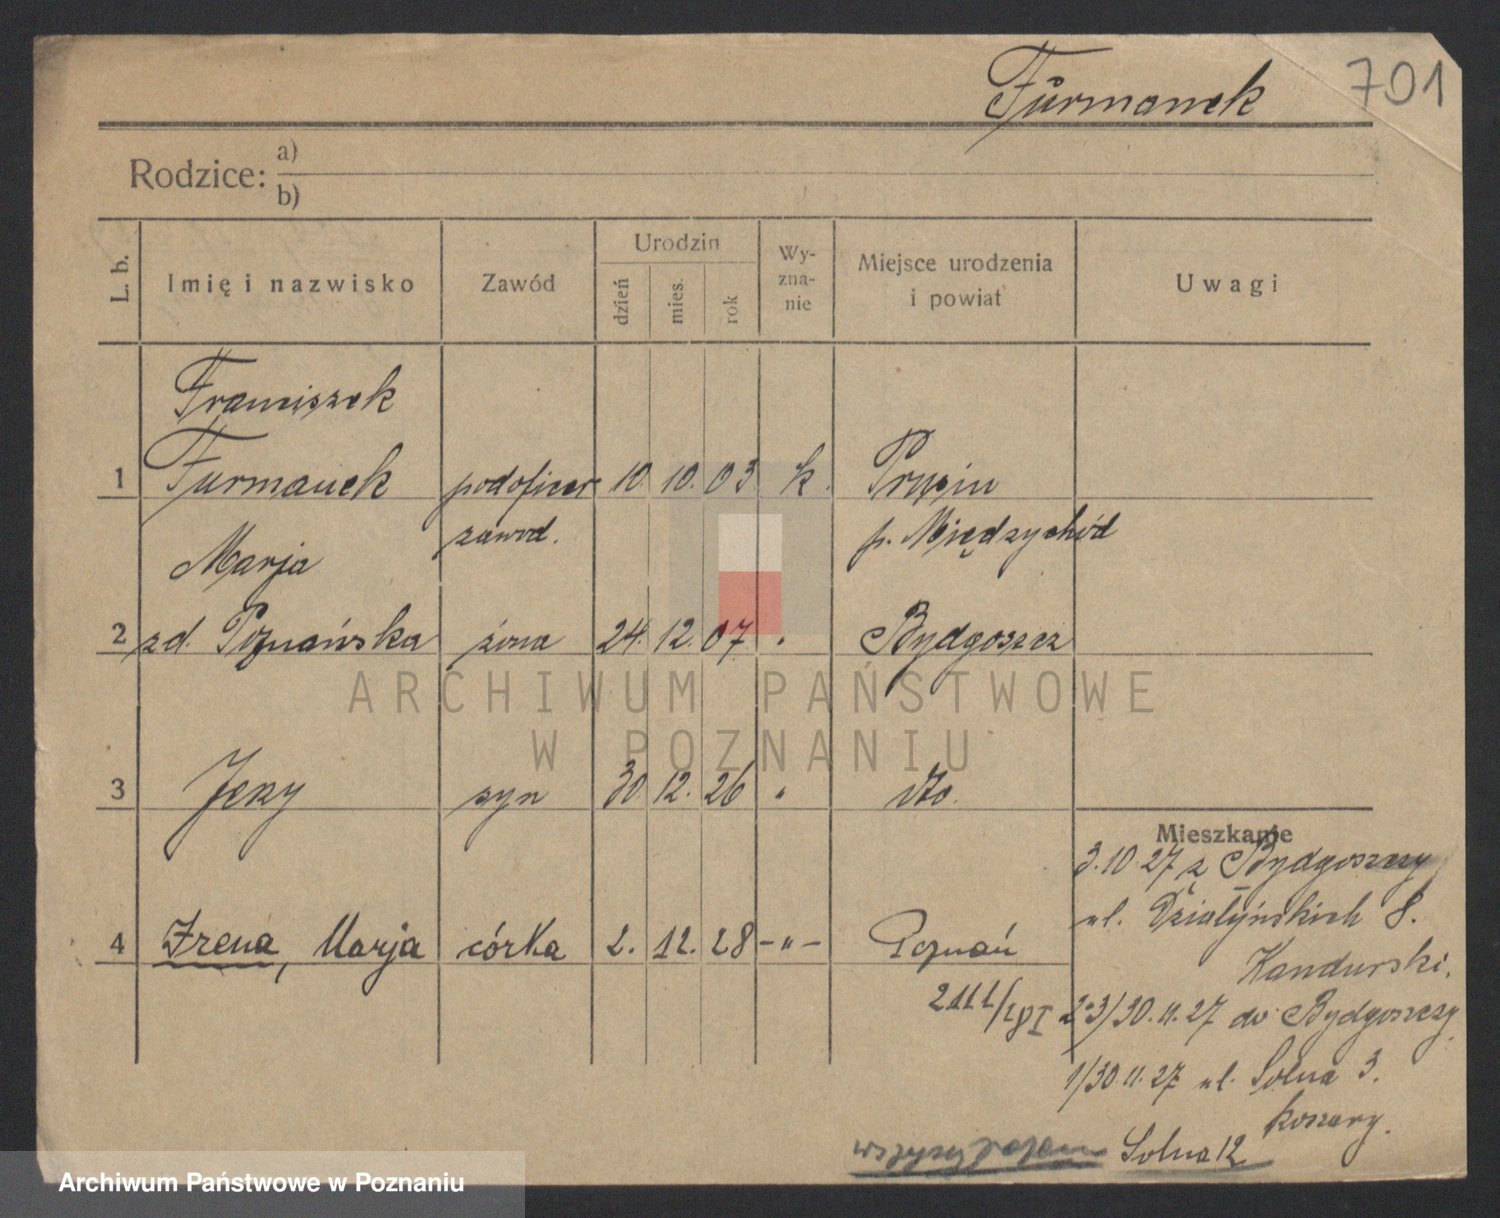 Furmanek 701
Rodzice: a)
b)
L. b. Imię i nazwisko Zawód Urodzin dzień mies. rok Wy-zna-nie Miejsce urodzenia i powiat Uwagi
Franciszek
1 Furmanek podoficer 10 10. 03 k.
zawod. p. Międzychód
Marja
2 zd. Poznańska żona 24. 12. 07 " Bydgoszcz
ARCHIWUM PAŃSTWOWE
W POZNANIU
3 Jerzy syn 30 12. 26 " dto.
Mieszkanie
3.10.27 z Bydgoszczy
ul. Działyńskich 8.
4 Irena, Marja córka 2. 12. 28 -"- Poznań
Kandurski.
2-3/30.11.27 do Bydgoszczy
1/30.11.27 ul. Solna 3.
koszary.
wszyscy razem Solna 12
Archiwum Państwowe w Poznaniu